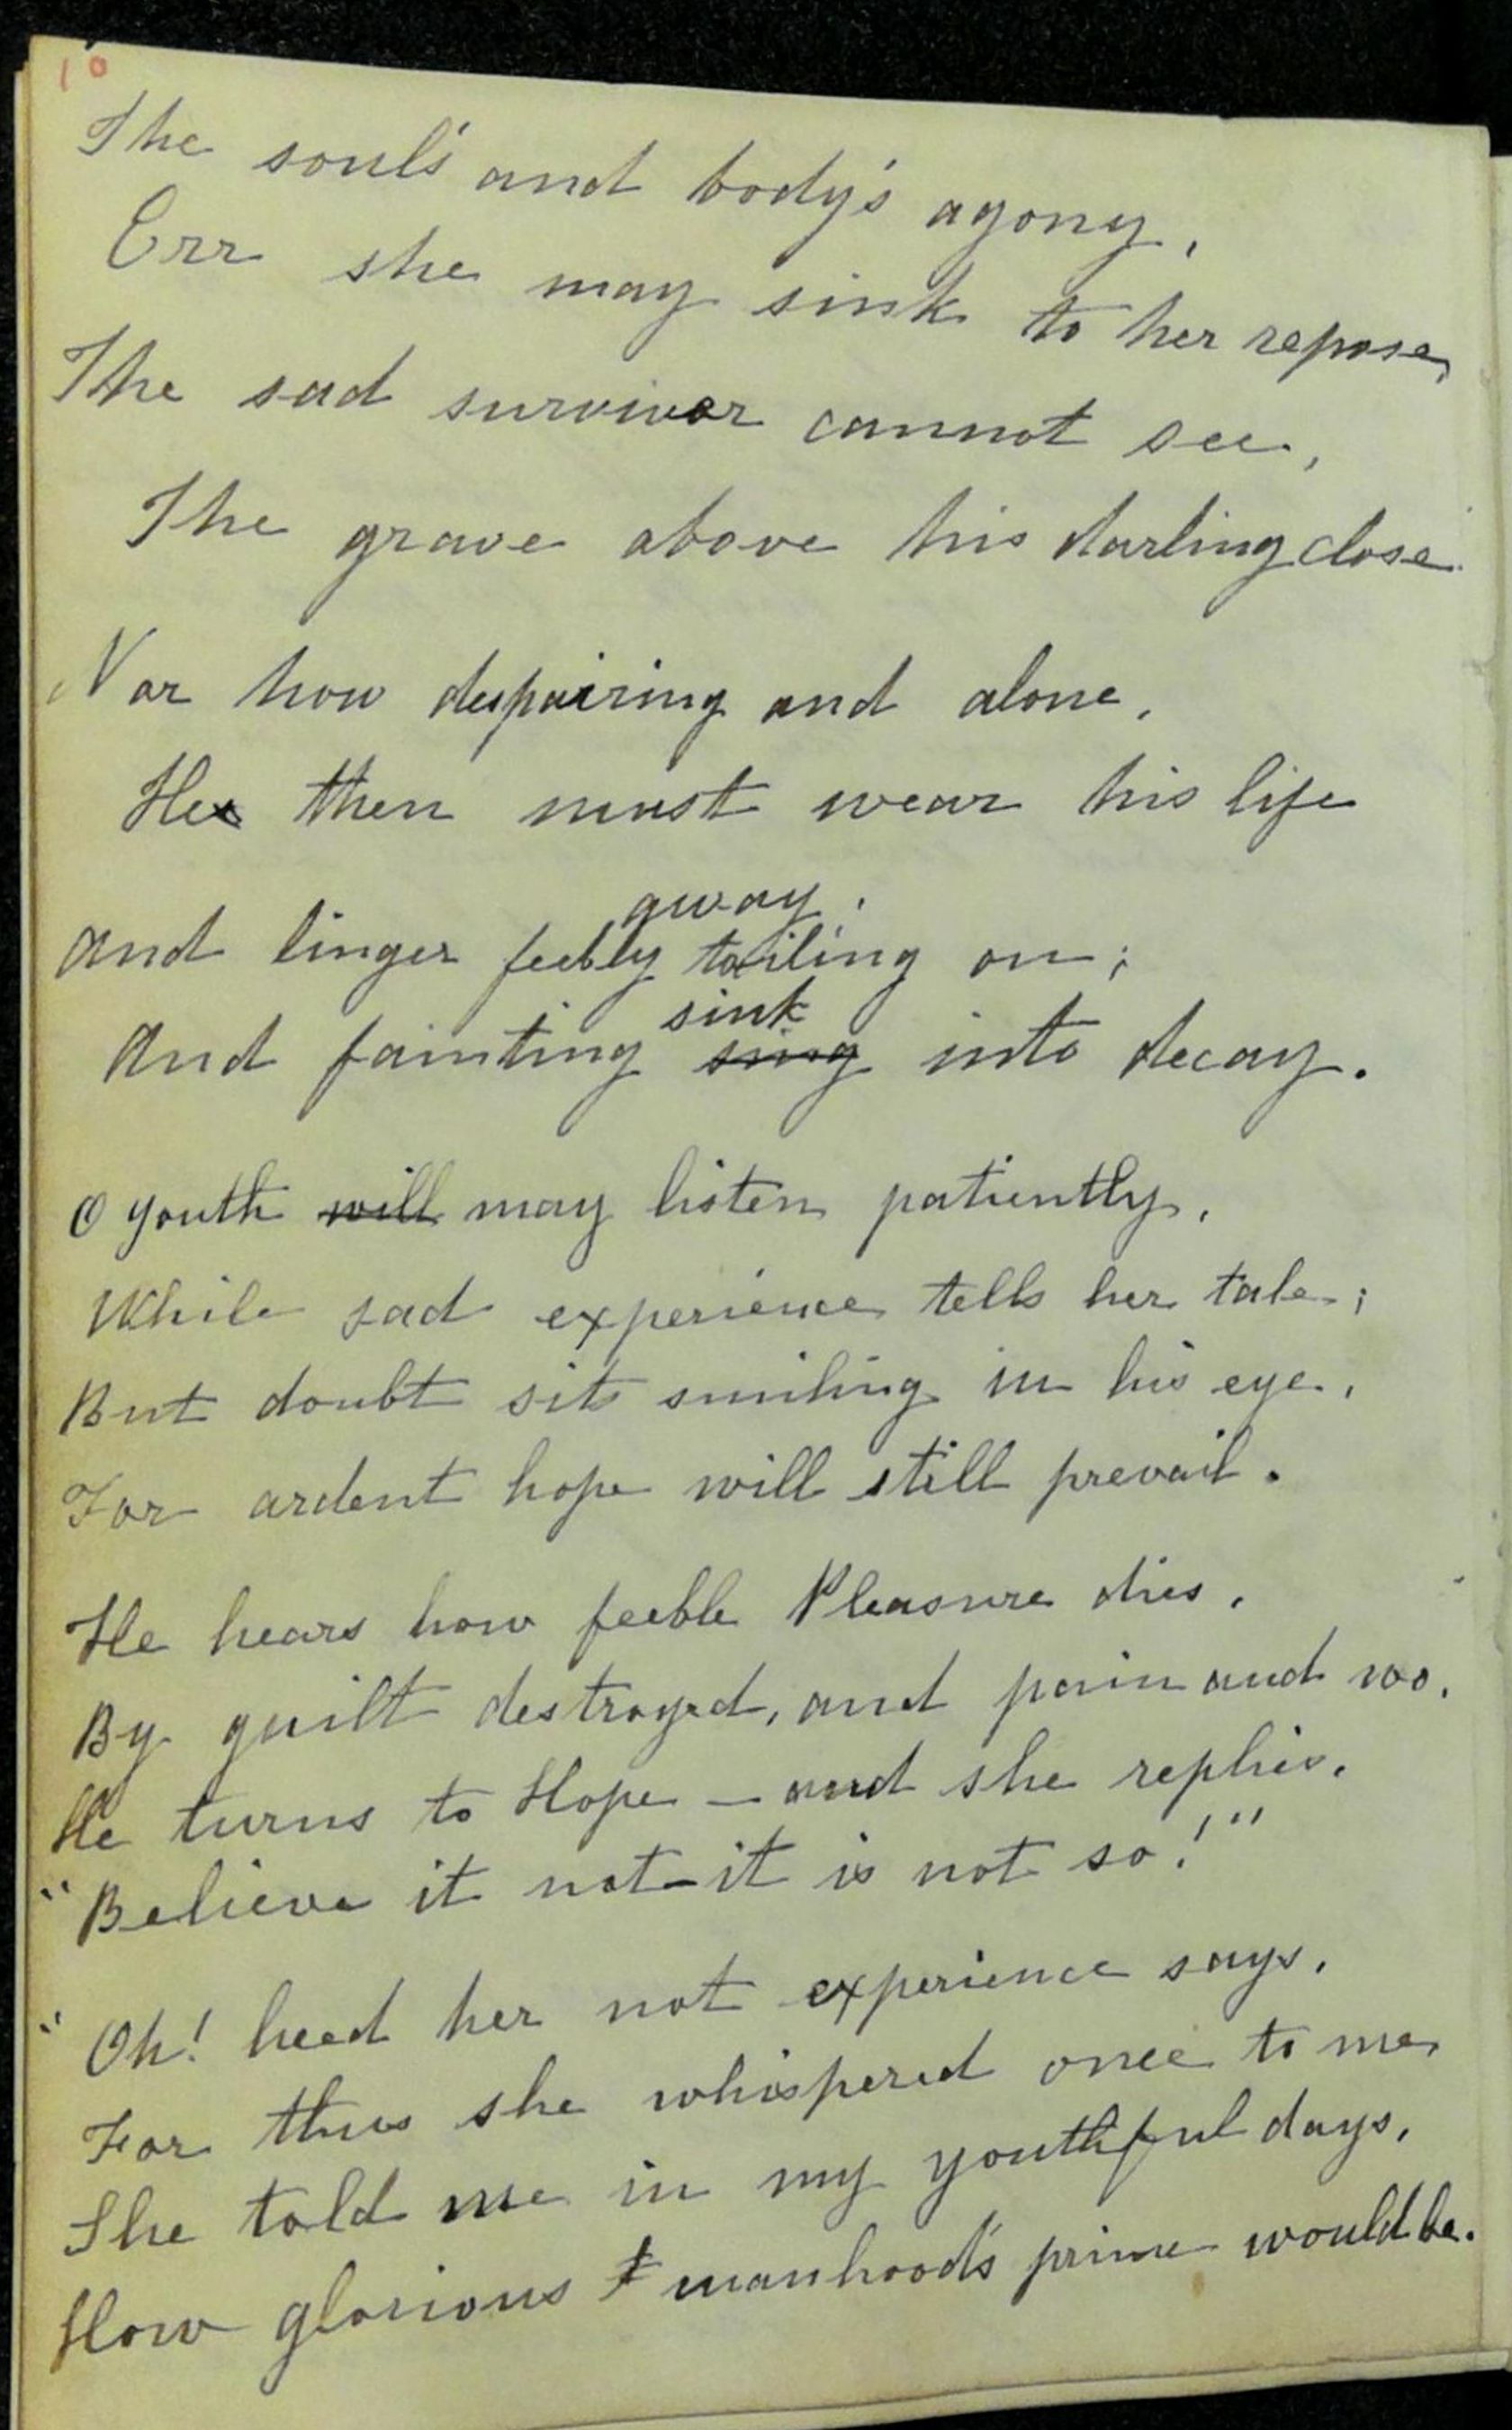 10
The soul's and body's agony,
Err she may sink to her repose,
The sad survivor cannot see,
The grave above his darling close.
Nor how despairing and alone,
He then must wear his life
away.
And linger feebly toiling on;
sink
And fainting sing into decay.
O youth will may listen patiently,
While sad experience tells her tale;
But doubt sits smiling in his eye,
For ardent hope will still prevail.
He hears how feeble Pleasure dies,
By guilt destroyed, and pain and wo.
He turns to Hope – and she replies,
"Believe it not-it is not so!"
"Oh! heed her not experience says,
For thus she whispered once to me,
She told me in my youthful days,
How glorious manhood's prime would be.